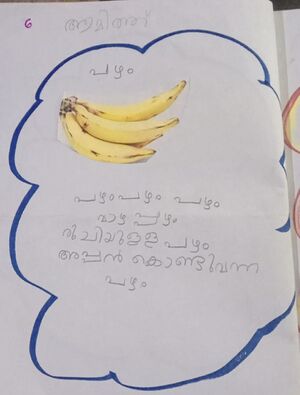 6 ആമിത്ത്
പഴം
പഴംപഴം പഴം
വാഴ പ്പഴം
രുചിയുള്ള പഴം
അപ്പൻ കൊണ്ടുവന്ന
പഴം